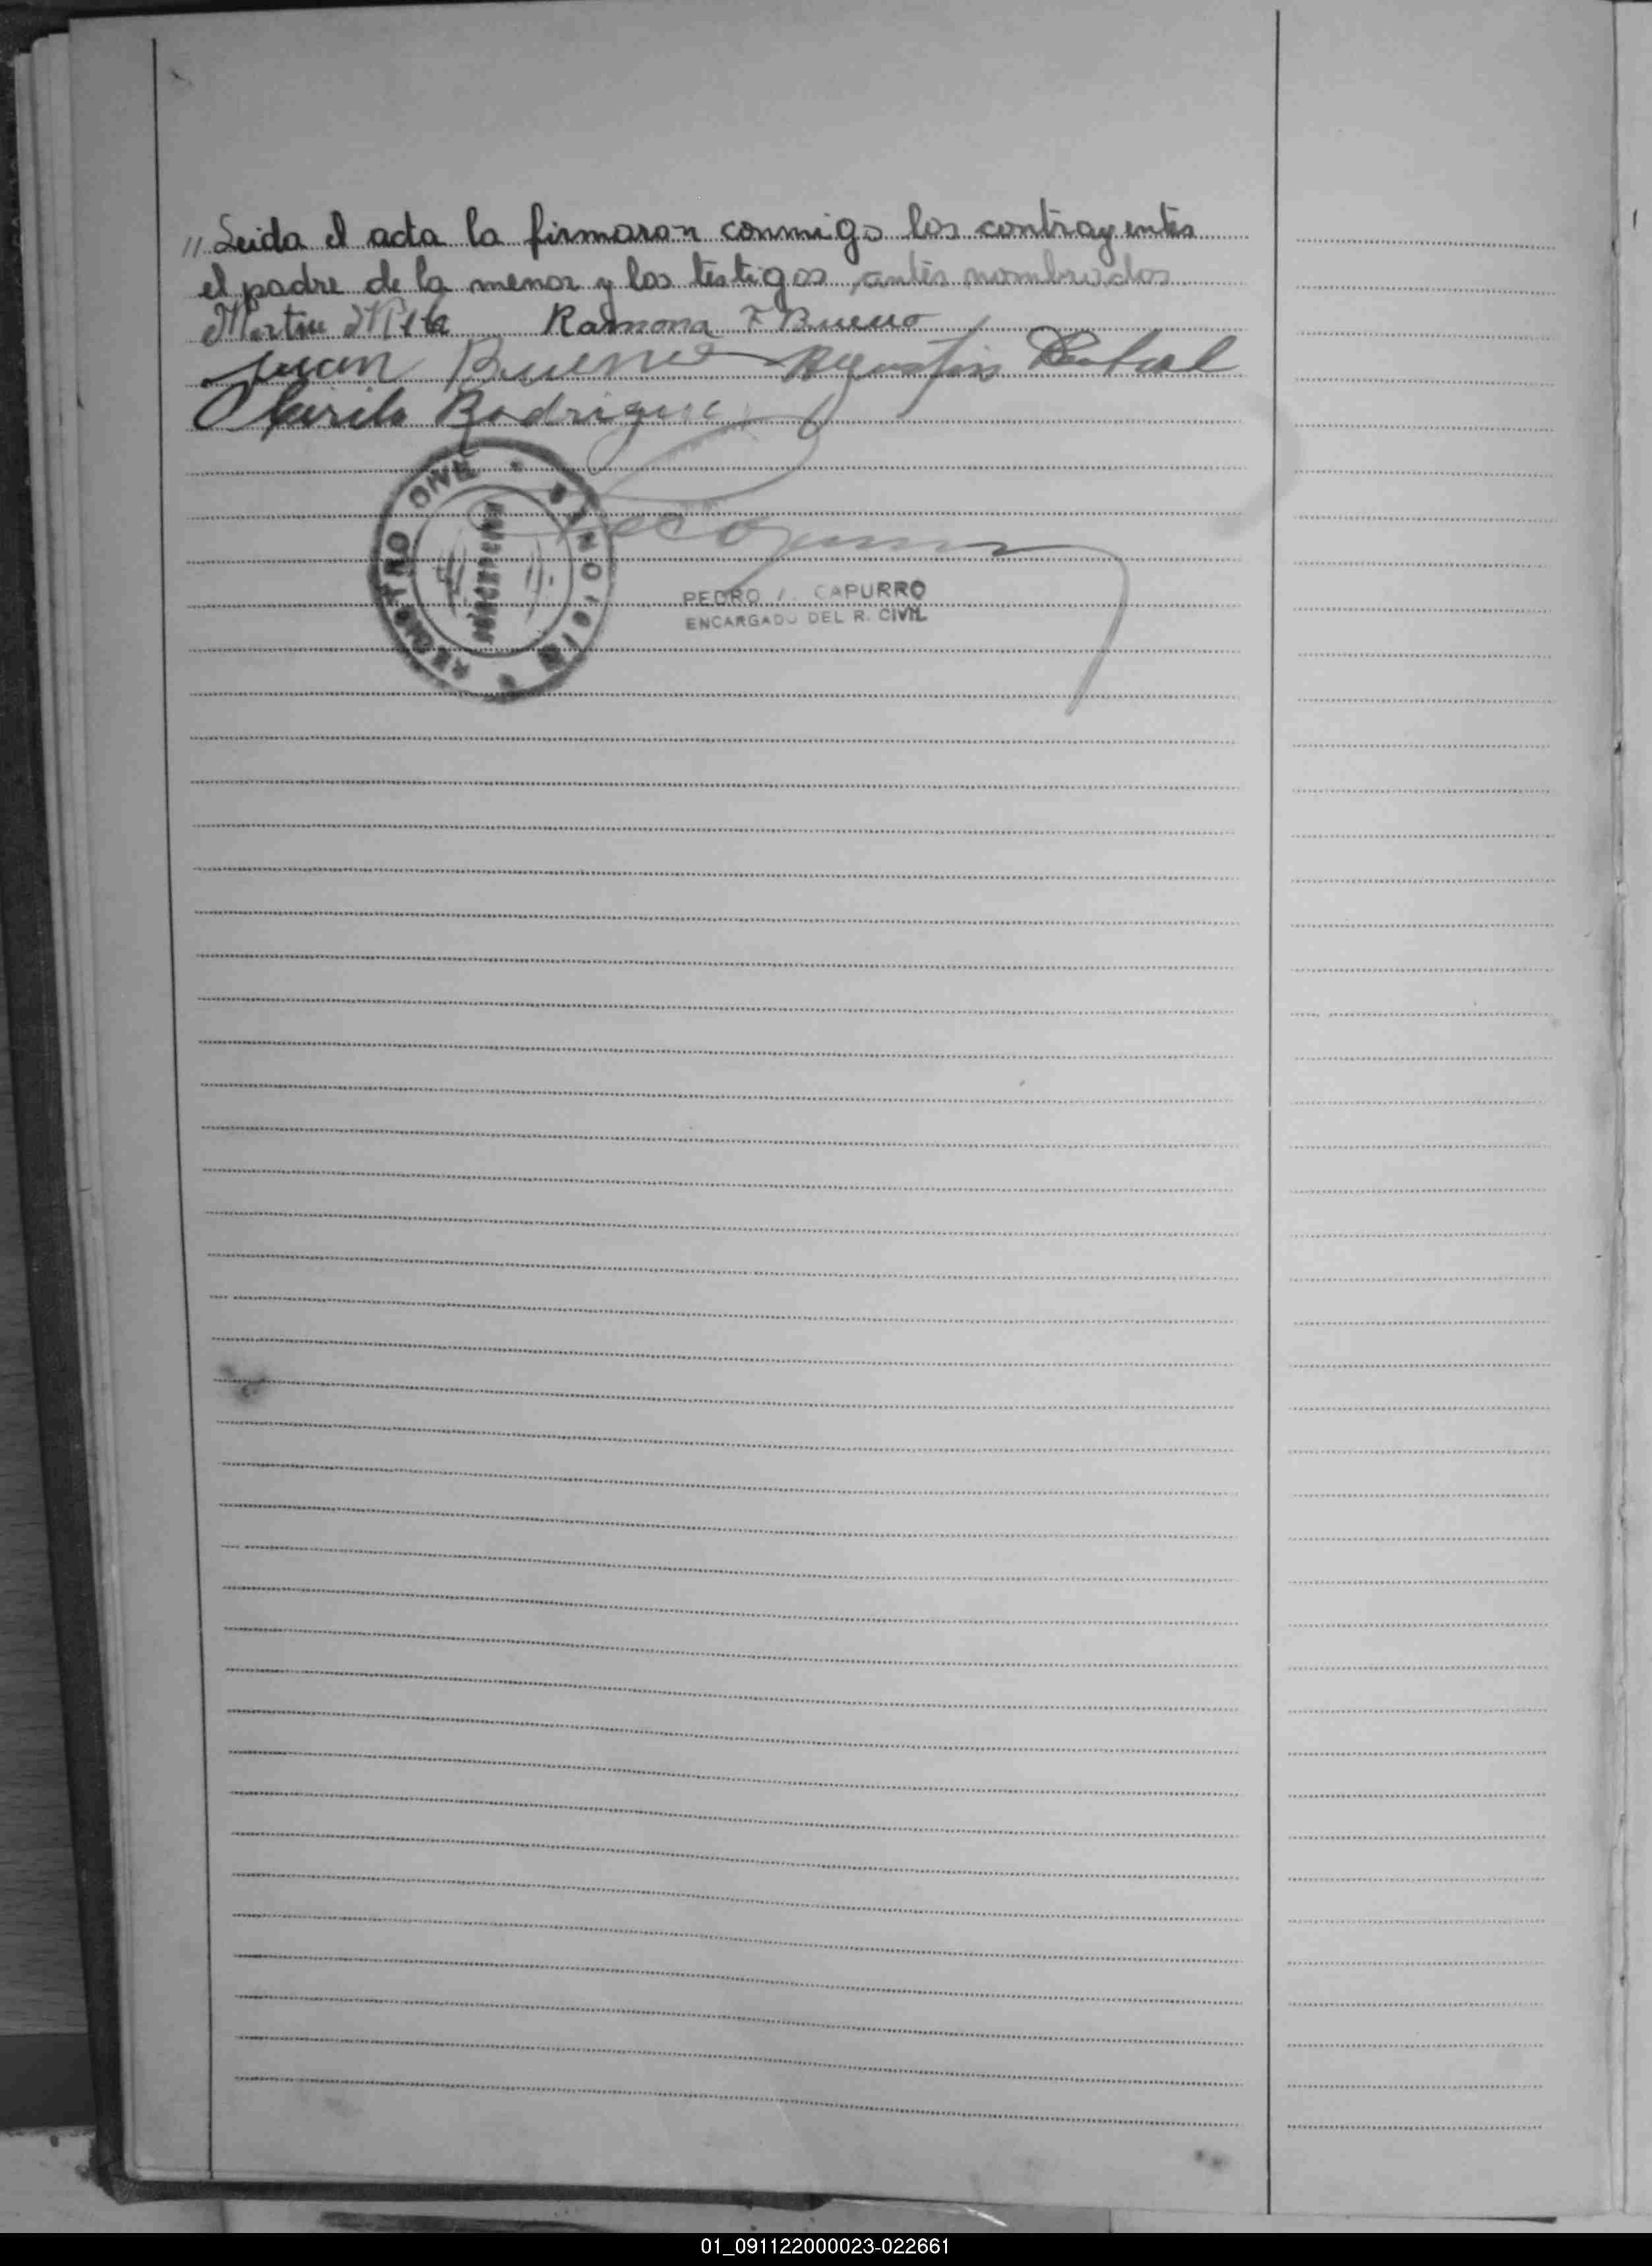 // Leida el acta la firmaron conmigo los contrayentes
el padre de la menor y los testigos, antes nombrados
Ramona F Bueno
Juan Bueno Agustin
Rodriguez
REGISTRO CIVIL
PEDRO CAPURRO
ENCARGADO DEL R. CIVIL
01_091122000023-022661